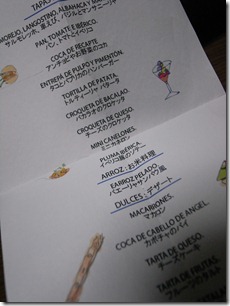 TAPA
MOREJO, LANGOSTINO, ALBAHACA Y MA
サルモレッホ、車えび、バジルとマンサニーリャ
PAN, TOMATE E IBÉRICO.
パン、トマトとイベリコ
COCA DE RECAPTE.
アンチョビとお野菜のコカ
ENTREPÀ DE PULPO Y PIMENTON.
タコとパプリカのハンバーガー
TORTILLA DE PATATA.
トルティーリャ パタータ
CROQUETA DE BACALAO.
バカラオのクロケッタ
CROQUETA DE QUESO.
チーズのクロケッタ
MINI CANELONES.
ミニカネロン
PLUMA IBERICA.
イベリコ豚
ARROZ: お米料理
EARROZ PELADO.
パエーリャ
DULCES: デザート
MACARRONES.
マカロン
COCA DE CABELLO DE ANGEL.
カボチャのパイ
TARTA DE QUESO.
チーズケーキ
TARTA DE FRUTAS.
フルーツのタルト